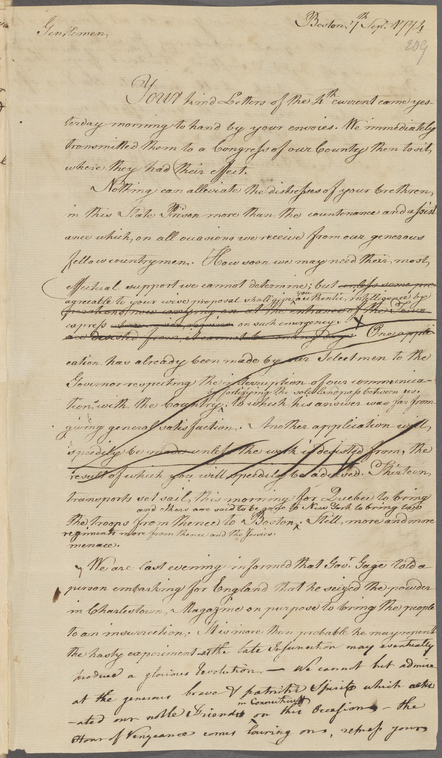 Boston, 7th Sepr. 1774
209
Gentlemen,
Your kind Letters of the 4th current came yes
terday morning to hand by your envoies. We immediately
transmitted them to a Congress of our County then to sit,
where they had their effect.
Nothing can alleviate the distresses of your brethren,
in this State Prison more than the countenance and assist
ance which, on all occasions we receive from our generous
fellow countrymen. How soon we may need their most
effectual support we cannot determine; but
agreable to your wise proposal shall give you authentic Intelligence by
express on such emergency.
One appli
cation has already been made by our Selectmen to the
Governor respecting the interruption of our communica-
tion with the Country, to which his answer was far from
fortifying the only land pass between
giving general satisfaction. Another application will,
speedily be made until the work is desisted from, the
result of which you will speedily be advised. Thirteen
transports set sail, this morning for Quebec to bring
and there are said to be gone to New York to bring two
the troops from thence to Boston. Still, more and more
regiments more from thence and the Jersies
menace.
We are last evening informed that Gov. Gage told a
person embarking for England that he seized the powder
in Charlestown Magazine on purpose to bring the people
to an insurrection. It is more than probable he may repent
the hasty experiment as the late may eventually
produce a glorious Revolution. — We cannot but admire
at the generous brave & patriotic Spirits which actu
-ated our noble Friends in Connecticutt on this Occasion - the
Hour of Vengeance comes lowring on, repress your